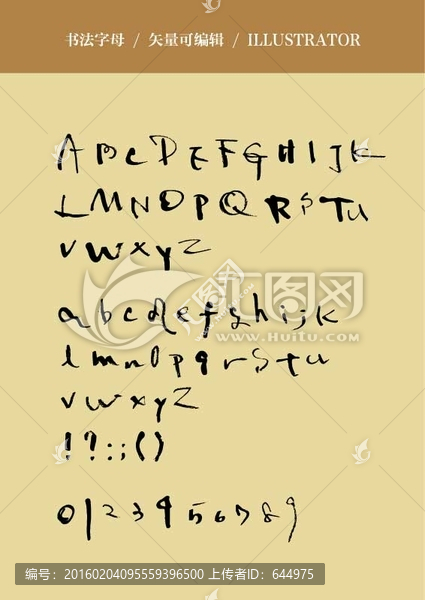 书法字母 / 矢量可编辑 / ILLUSTRATOR
A B C D E F G H I J K
L M N O P Q R S T U
V W X Y Z
a b c d e f g h i j k
l m n o p q r s t u
v w x y z
! ? : ; ( )
0 1 2 3 4 5 6 7 8 9
图行天下
www.Huitu.com
编号：20160204095559396500 上传者ID：644975